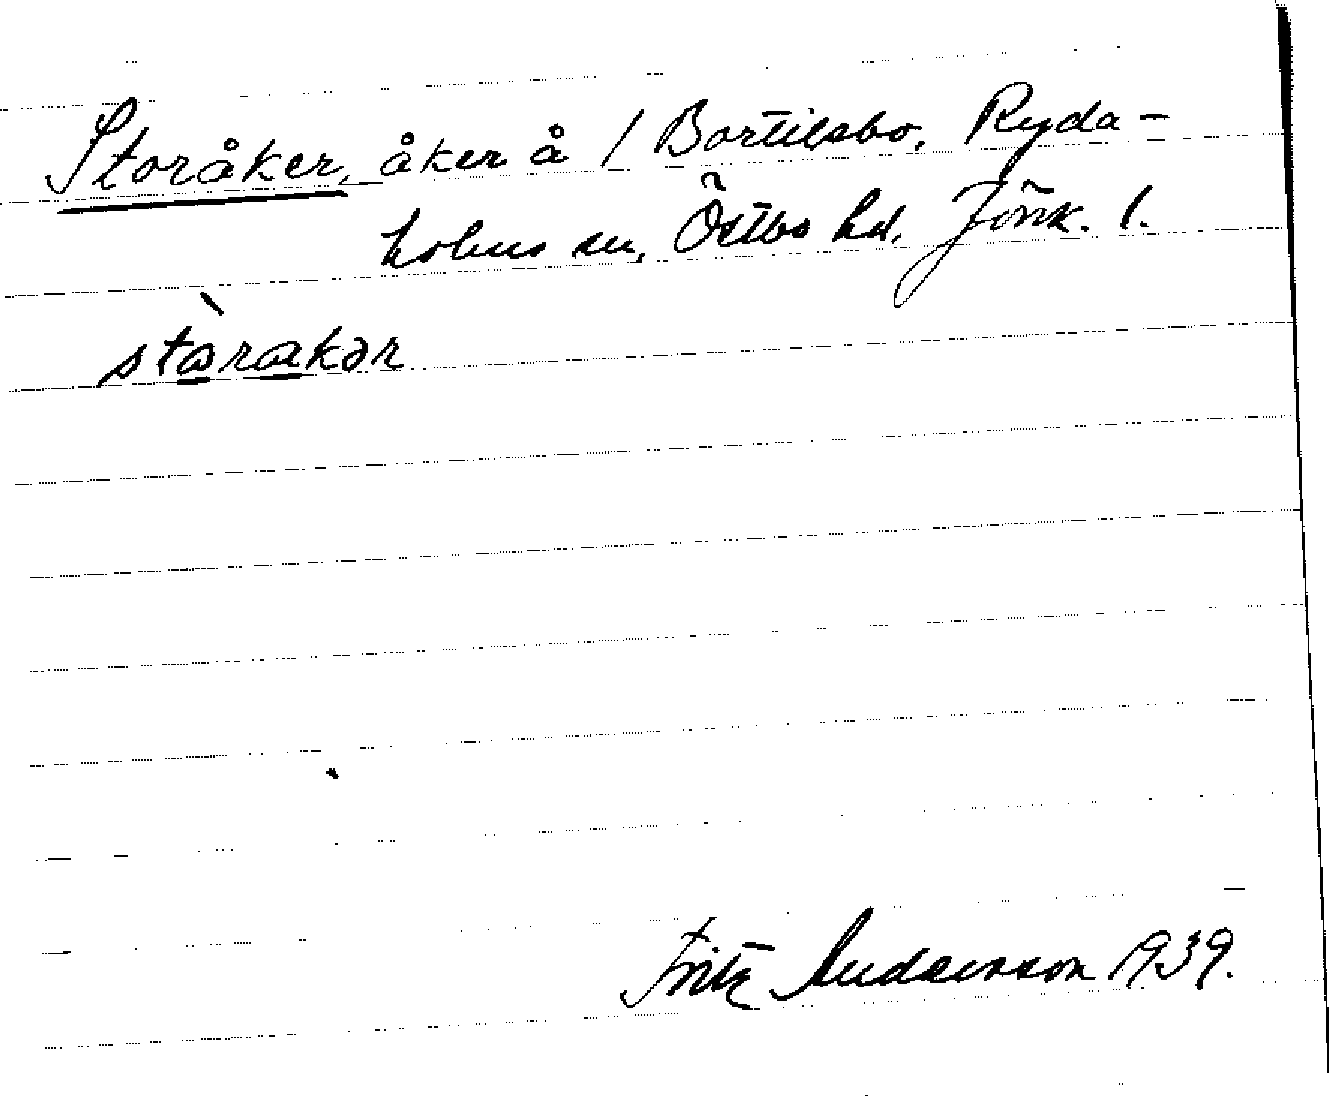 Storåker, åker å / Bortilsbo, Ryda-
holms sn, Östbo hd, Jönk. l.
stòrakər
Fritz Andersson 1939.